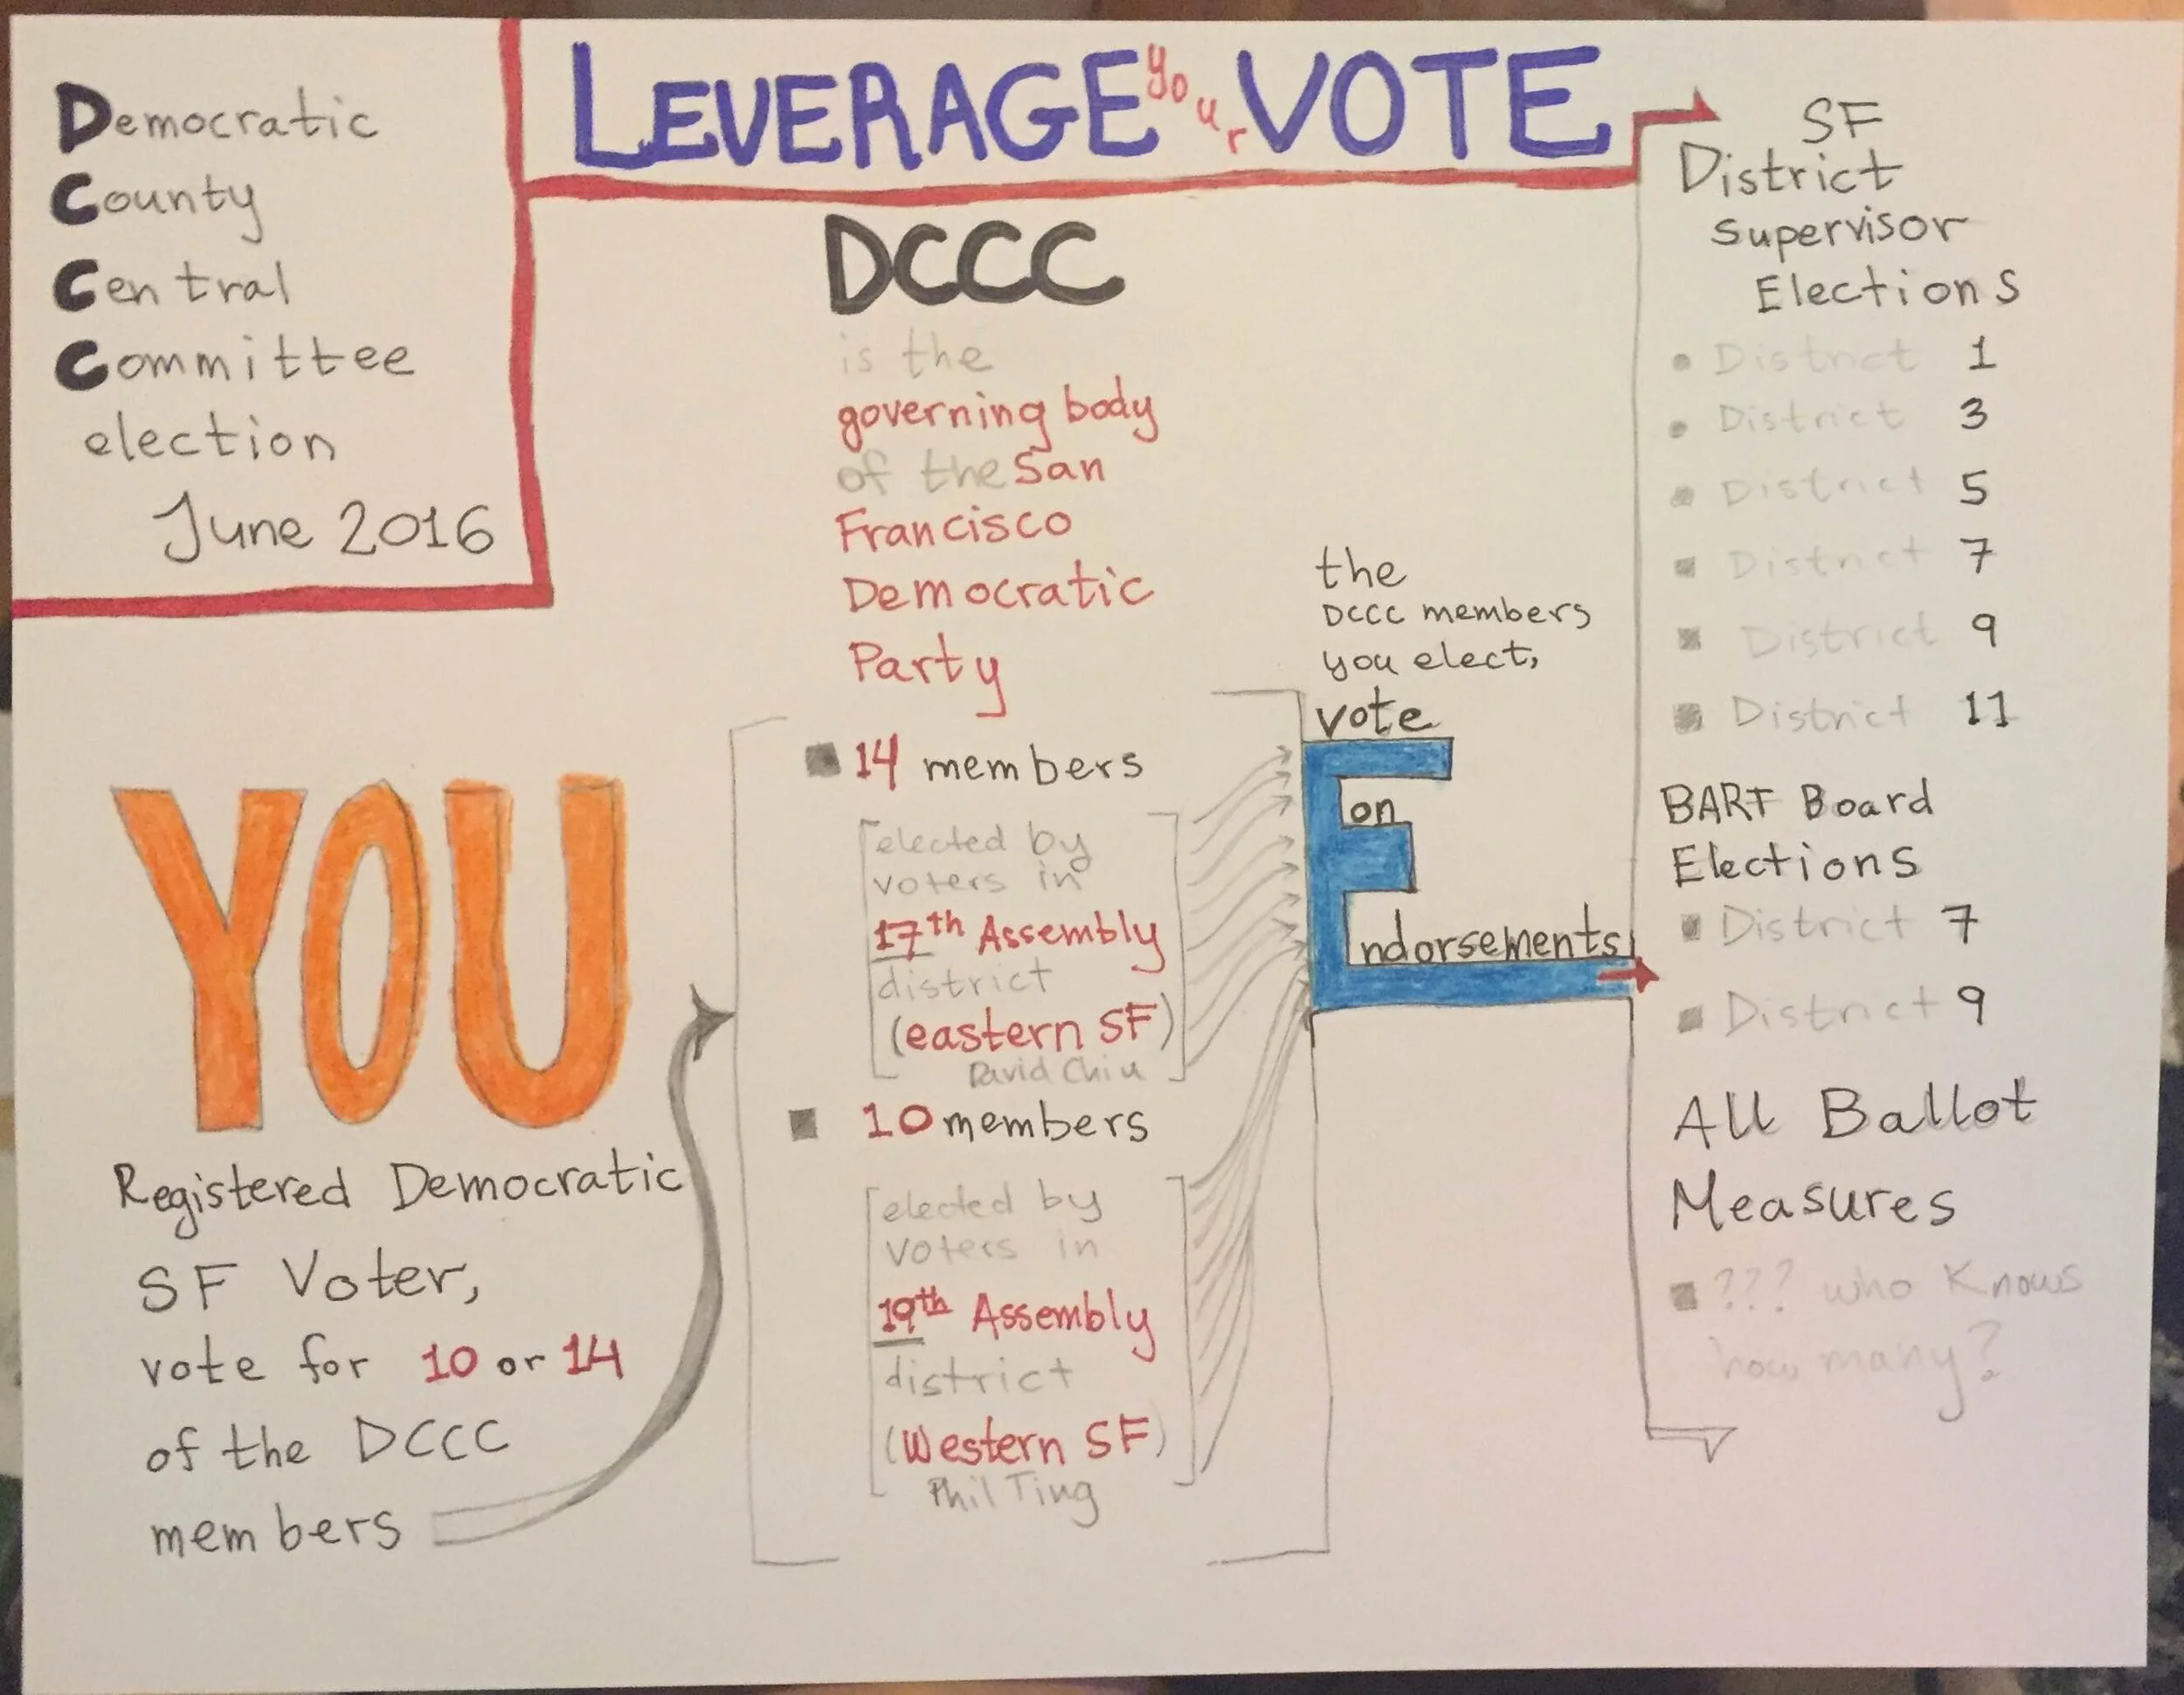 Democratic
County
Central
Committee
election
June 2016
LEVERAGE your VOTE
DCCC
is the
governing body
of the San
Francisco
Democratic
Party
14 members
elected by
voters in
17th Assembly
district
(eastern SF)
David Chiu
10 members
elected by
voters in
19th Assembly
district
(Western SF)
Phil Ting
YOU
Registered Democratic
SF Voter,
vote for 10 or 14
of the DCCC
members
the
DCCC members
you elect,
vote
on
Endorsements
SF
District
Supervisor
Elections
District 1
District 3
District 5
District 7
District 9
District 11
BART Board
Elections
District 7
District 9
All Ballot
Measures
??? who knows
how many?